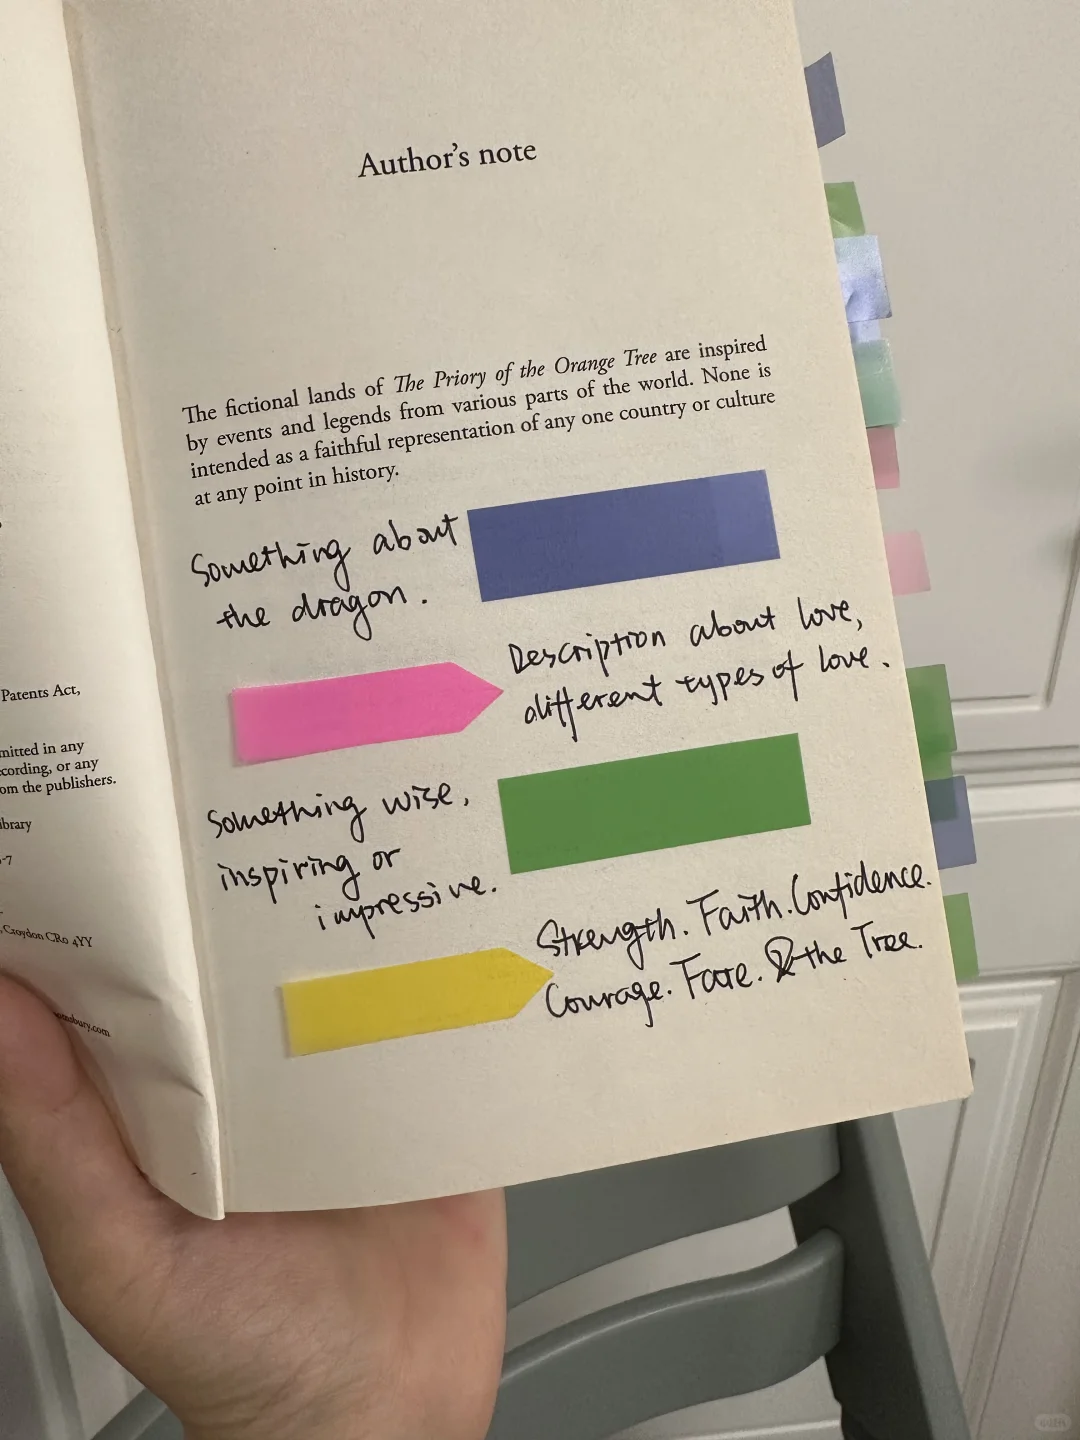 Author's note
The fictional lands of The Priory of the Orange Tree are inspired
by events and legends from various parts of the world. None is
intended as a faithful representation of any one country or culture
at any point in history.
Something about
the dragon.
Description about love,
different types of love.
Something wise,
inspiring or
impressive.
Strength. Faith. Confidence.
Courage. Fate. & the Tree.
Patents Act,
mitted in any
cording, or any
om the publishers.
ibrary
-7
, Croydon CR0 4YY
omsbury.com